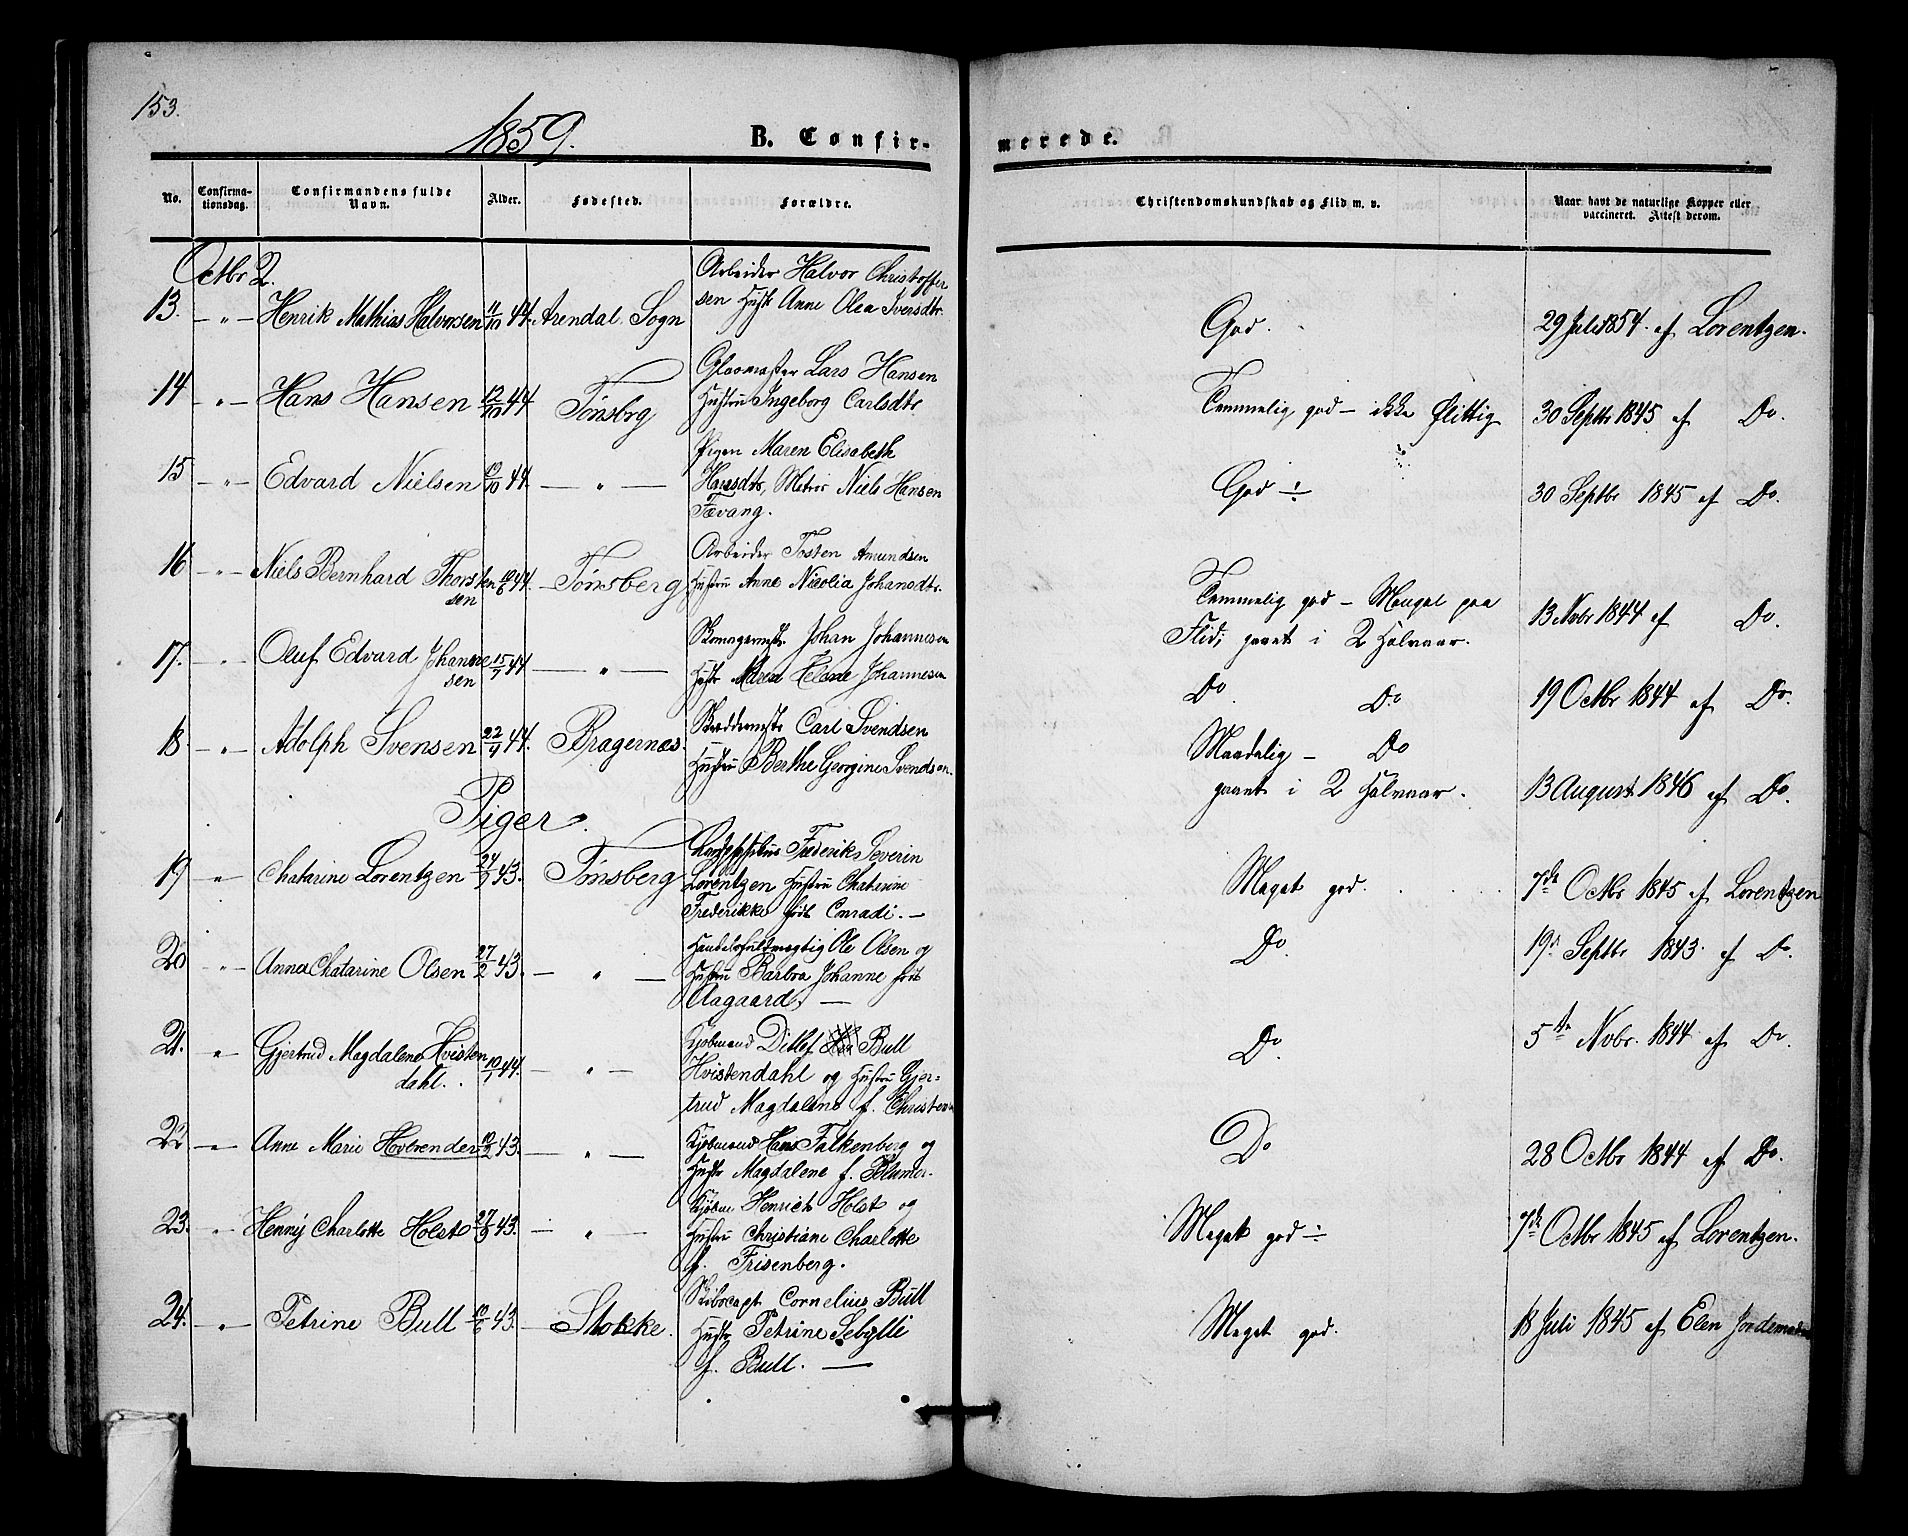 153.
1859.
B. Confir-
merede.
No.
Confirma-
tionsdag.
Confirmandens fulde
Navn.
Alder.
Fødested.
Forældre.
Christendomskundskab og Flid m. v.
Naar havt de naturlige Kopper eller
vaccineret. Attest derom.
Octbr 2.
Arbeider Halvor Christoffer
13. — " — Henrik Mathias Halvorsen 11/10 44. Arendal Sogn sen Hustr Anne Olea Iversdtr.
God. 29 Juli 1854. af Lorentzen.
Lars Hansen
14 — " — Hans Hansen 12/10 44 Tønsbrg Hustru Ingeborg Carlsdtr
Temmelig god — ikke flittig 30 Septbr 1845 af Do.
Pigen Maren Elisabeth
15 — " — Edvard Nielsen 19/10 44. — " — Hansdtr, Matros Niels Hansen
Fævang.
God ÷ 30 Septbr 1845 af Do.
Arbeider Tosten Amundsen
16 — " — Niels Bernhard Thorsten 44. — Tønsberg Hustru Anne Nicolia Johansdtr.
sen
Temmelig god — Mangel paa 13 Novbr 1844 af Do.
Flid; gaaet i 2 Halvaar.
Skomagermstr Johan Johannesen
17. — " — Oluf Edvard Johanne 15/7 44 — " — Hustr Maren Helene Johannesen
sen
Do. Do. 19 Octbr 1844 af Do.
Skræddermstr Carl Svendsen
18. — " — Adolph Svensen 22/9 44. Bragernæs. Hustru Berthe Georgine Svendsen.
Maadelig — Do
gaaet i 2 Halvaar. 13 August 1846 af Do.
Piger.
Frederik Severin
19 " — Chatarine Lorentzen 43. Tønsberg Lorentzen Hustru Chatarine
Frederikke født Conradi. —
Meget god. 7de Octbr 1845 af Lorentzen
Handelsfuldmægtig Ole Olsen og
20 — " — Anna Chatarine Olsen 27/2 43. — " — Hustru Barbra Johanne født
Aagaard. —
Do. 19de Septbr 1843. af Do.
Kjøbmand Ditlef Bull
21. " — Gjertrud Magdalene Hvisten 10/1 44. — " — Hvistendahl og Hustru Gjer-
dahl. trud Magdalene f. Christensen
Do. 5te Novbr. 1844. af Do.
22 — " — Anne Marie 43. — " — Kjøbmand Hans Falkenberg og
Hustr Magdalene f. Blumer.
Do 28 Octbr 1844 af Do.
Kjøbm Henrich Holst og
23. " — Henny Charlotte Holst 43. — " — Hustru Christiane Charlotte
f. Frisenberg.
Meget god ÷ 7de Octbr 1845 af Lorentzen.
Skibscapt Cornelius Bull
24. — " — Petrine Bull 43. — Stokke. Hustr Petrine Sebylli
f. Bull. —
Meget god. 18 Juli 1845 af Elen Jordemoder